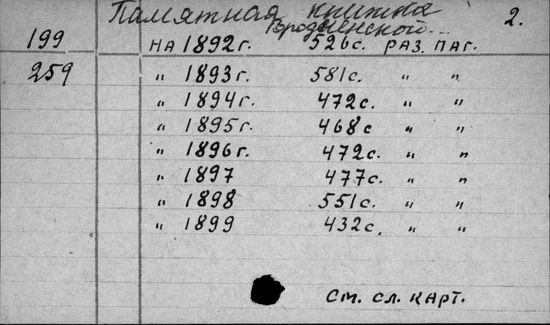 Памятная книжка 2.
Гродненской...
199 на 1892г. 526с. раз. паг.
259 " 1893г. 581с. " "
" 1894г. 472с. " "
" 1895г. 468с " "
" 1896г. 472с. " "
" 1897 477с. " "
" 1898 551с. " "
" 1899 432с. " "
Ст. сл. карт.